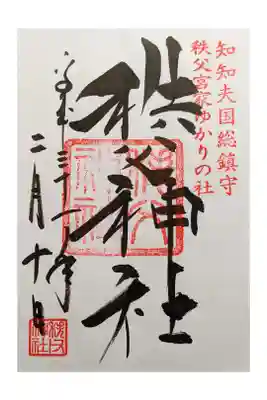 知知夫国総鎮守
秩父宮家ゆかりの社
秩父神社
平成三十一年
二月十日
秩父神社